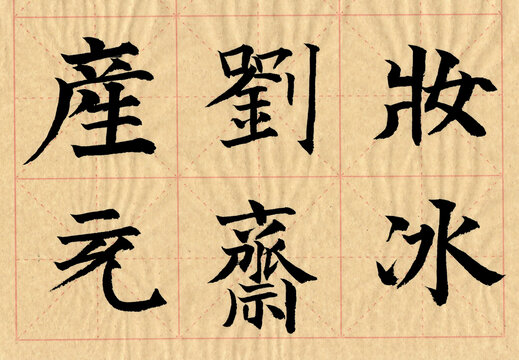 妝冰
劉齋
産元